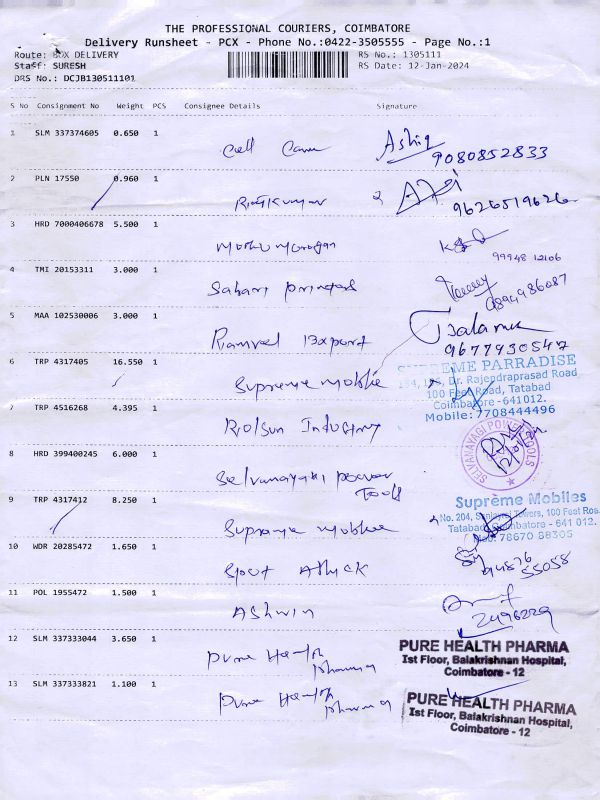 THE PROFESSIONAL COURIERS, COIMBATORE
Delivery Runsheet - PCX - Phone No.:0422-3505555 - Page No.:1
Route: BOX DELIVERY RS No.: 1305111
Staff: SURESH RS Date: 12-Jan-2024
DRS No.: DCJB130511101
S No Consignment No Weight PCS Consignee Details Signature
1 SLM 337374605 0.650 1
Cell Care Ashiq
9080852833
2 PLN 17550 0.960 1
9626519626
3 HRD 7000406678 5.500 1
Muthu Murugan
99948 12106
4 TMI 20153311 3.000 1
Sahari printers
9894986087
5 MAA 102530006 3.000 1
Ramvel Export
9677930547
6 TRP 4317405 16.550 1
Supreme moblie
SUPREME PARRADISE
Dr. Rajendraprasad Road
100 Feet Road, Tatabad
Coimbatore - 641012.
Mobile: 7708444496
7 TRP 4516268 4.395 1
Industry
8 HRD 399400245 6.000 1
Selvanayaki power
Tools
SELVANAYAGI POWER TOOLS
9 TRP 4317412 8.250 1
Supreme moblie
Suprème Mobiles
No. 204, Towers, 100 Feet Road
Tatabad, Coimbatore - 641 012.
78670 88305
10 WDR 20285472 1.650 1
Sport Attack
94876
55058
11 POL 1955472 1.500 1
Ashwin
2496229
12 SLM 337333044 3.650 1
Pure Health
pharma
PURE HEALTH PHARMA
Ist Floor, Balakrishnan Hospital,
Coimbatore - 12
13 SLM 337333821 1.100 1
Pure Health
pharma
PURE HEALTH PHARMA
Ist Floor, Balakrishnan Hospital,
Coimbatore - 12